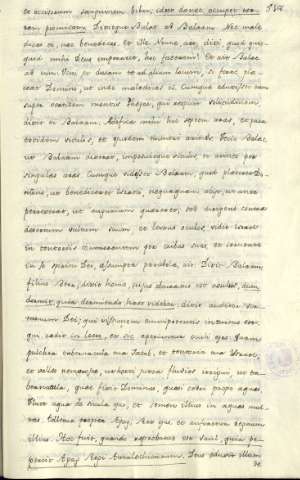 et occisorum sanguinem bibat, ideo donec occupet ter-
ram promissam. Dixitque Balac ad Balaam. Nec male
dicas ei, nec benedicas. Et ille Nonne ait, dixi quod quid-
quid mihi Deus imperaret, hoc facerem? Et ait Balac
ad eum Veni, et ducam te ad alium locum, si forte pla-
ceat Domino, ut inde maledicas ei. Cumque duxisset eum
super verticem montis Phogor, qui respicit solitudinem,
dixit ei Balaam. Aedifica mihi hic septem aras, et para
totidem vitulos, et ejusdem numeri arietes. Fecit Balac,
ut Balaam dixerat, imposuitque vitulos, et arietes per
singulas aras. Cumque vidisset Balaam, quod placeret Do-
mino, ut benediceret Israeli nequaquam abiit, ut ante
perrexerat, ut augurium quaereret, sed dirigens contra
desertum vultum suum, et levans oculos, vidit Israel
in tentoriis commorantem per tribus suas, et irruente
in se spiritu Dei, assumpta parabola, ait. Dixit Balaam
filius Beor, dixit homo, cujus obturatus est oculus,
dixit auditor ser-
monum Dei, qui visionem omnipotentis intuitus est,
qui cadit in et sic aperiuntur oculi ejus. Quam
pulchra tabernacula tua Jacob, et tentoria tua Israel,
ut valles nemorosae, ut horti juxta fluvios irrigui, ut ta-
bernacula, quae fixit Dominus, quasi cedri prope aquas.
Fluet aqua de situla ejus, et semen illius in aquas mul-
tas, tolletur propter Agag, Rex ejus, et auferetur regnum
illius. Hoc fuit, quando reprobatus est Saul, quia pe-
percit Agag Regi Amalechitarum. Deus eduxit illum
de